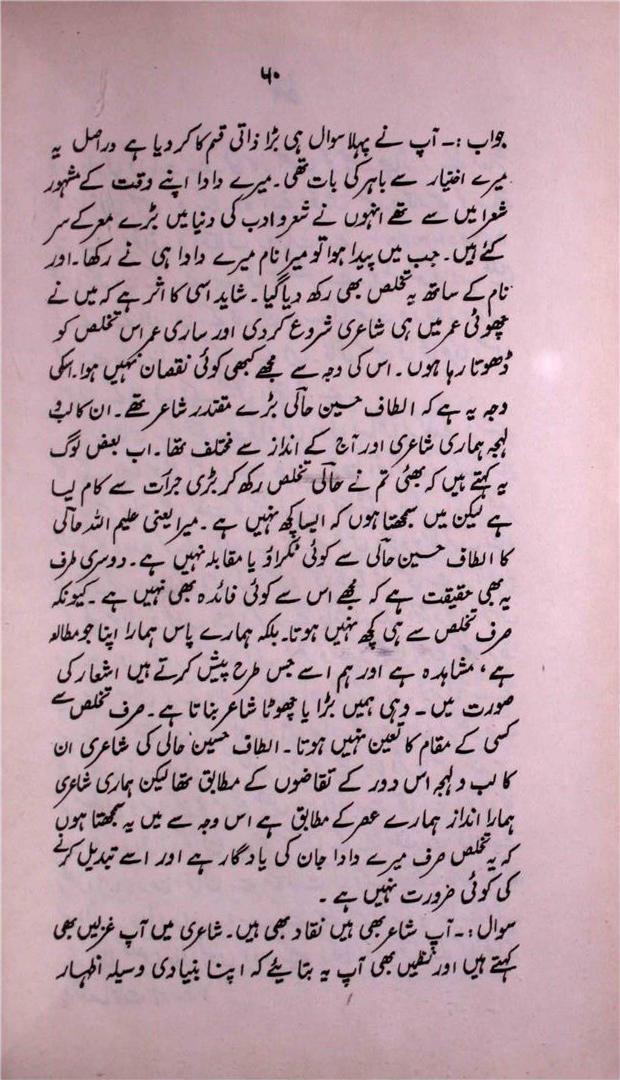 ۶۰
جواب :۔ آپ نے پہلا سوال ہی بڑا ذاتی قسم کا کر دیا ہے دراصل یہ
میرے اختیار سے باہر کی بات تھی۔ میرے دادا اپنے وقت کے مشہور
شعرا میں سے تھے انہوں نے شعر و ادب کی دنیا میں بڑے معرکے سر
کئے ہیں۔ جب میں پیدا ہوا تو میرا نام میرے دادا ہی نے رکھا۔ اور
نام کے ساتھ یہ تخلص بھی رکھ دیا گیا۔ شاید اسی کا اثر ہے کہ میں نے
چھوٹی عمر میں ہی شاعری شروع کر دی اور ساری عمر اس تخلص کو
ڈھوتا رہا ہوں۔ اس کی وجہ سے مجھے کبھی کوئی نقصان نہیں ہوا۔ اسکی
وجہ یہ ہے کہ الطاف حسین حالی بڑے مقتدر شاعر تھے۔ ان کا لب و
لہجہ ہماری شاعری اور آج کے انداز سے مختلف تھا۔ اب بعض لوگ
یہ کہتے ہیں کہ بھئی تم نے حالی تخلص رکھ کر بڑی جرأت سے کام لیا
ہے لیکن میں سمجھتا ہوں کہ ایسا کچھ نہیں ہے۔ میرا یعنی علیم اللہ حالی
کا الطاف حسین حالی سے کوئی ٹکراؤ یا مقابلہ نہیں ہے۔ دوسری طرف
یہ بھی حقیقت ہے کہ مجھے اس سے کوئی فائدہ بھی نہیں ہے۔ کیونکہ
صرف تخلص سے ہی کچھ نہیں ہوتا۔ بلکہ ہمارے پاس ہمارا اپنا جو مطالعہ
ہے، مشاہدہ ہے اور ہم اسے جس طرح پیش کرتے ہیں اشعار کی
صورت میں۔ وہی ہمیں بڑا یا چھوٹا شاعر بناتا ہے۔ صرف تخلص سے
کسی کے مقام کا تعین نہیں ہوتا۔ الطاف حسین حالی کی شاعری ان
کا لب و لہجہ اس دور کے تقاضوں کے مطابق تھا لیکن ہماری شاعری
ہمارا انداز ہمارے عصر کے مطابق ہے اس وجہ سے میں یہ سمجھتا ہوں
کہ یہ تخلص صرف میرے دادا جان کی یادگار ہے اور اسے تبدیل کرنے
کی کوئی ضرورت نہیں ہے۔
سوال :۔ آپ شاعر بھی ہیں نقاد بھی ہیں۔ شاعری میں آپ غزلیں بھی
کہتے ہیں اور نظمیں بھی آپ یہ بتایئے کہ اپنا بنیادی وسیلہ اظہار